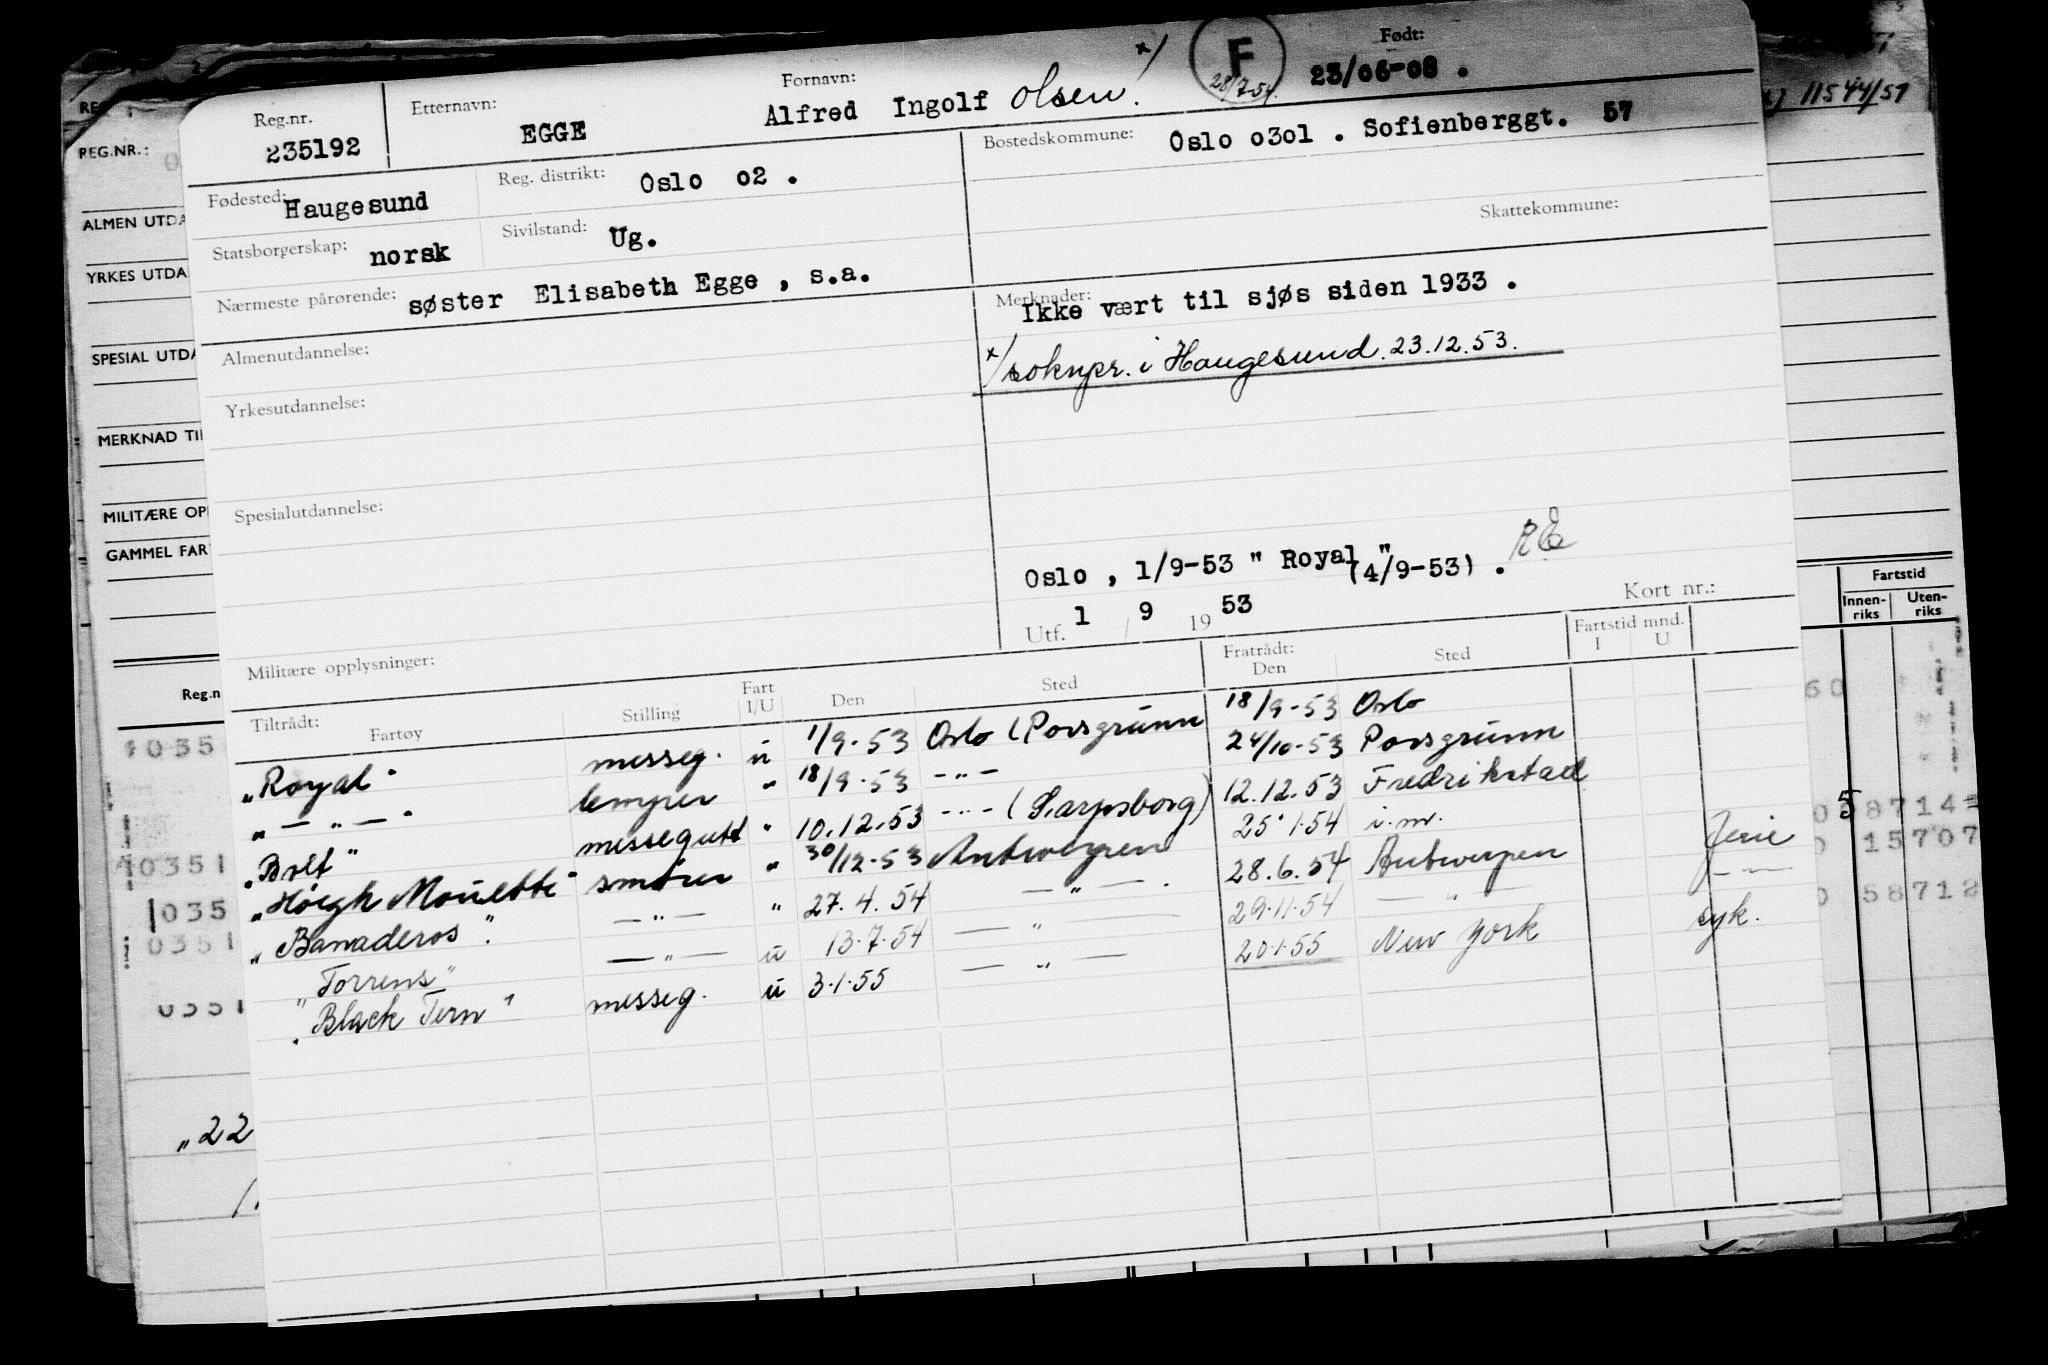 Reg.nr. Etternavn: Fornavn: x/ F Født:
235192 EGGE Alfred Ingolf Olsen. 28/7-54. 23/06-08 .
11544/57
Fødested: Haugesund Reg. distrikt: Oslo 02 . Bostedskommune: Oslo 0301 . Sofienberggt. 57
Statsborgerskap: norsk Sivilstand: Ug. Skattekommune:
Nærmeste pårørende: søster Elisabeth Egge , s.a.
Merknader: Ikke vært til sjøs siden 1933 .
x/ soknpr. i Haugesund. 23.12.53.
Almenutdannelse:
Yrkesutdannelse:
Spesialutdannelse:
Oslo , 1/9-53 " Royal " (4/9-53) .
Utf. 1 / 9 19 53 Kort nr.:
Militære opplysninger:
Tiltrådt: Fartøy Stilling Fart I/U Den Sted Fratrådt: Den Sted Fartstid mnd. I U
"Royal" messeg. u 1/9-53 Oslo (Porsgrunn 18/9-53 Oslo
" — " — " lemper " 18/9-53 — " — 24/10-53 Porsgrunn
"Bolt" messegutt " 10.12.53 — " — (Sarpsborg) 12.12.53 Fredrikstad
"Höegh Mouette" smører " 30/12-53 Antwerpen 25.1.54 i.m.
"Banaderos". — " — " 27.4.54 — " — . 28.6.54 Antwerpen Ferie
"Torrens" — " — u 13.7.54 — " 29.11.54 — " — — " —
"Black Tern" messeg. u 3.1.55 — " — 20.1.55 New York syk.
REG.NR.:
ALMEN UTDA
YRKES UTDA
SPESIAL UTDA
MERKNAD TIL
MILITÆRE OP
GAMMEL FAR
Reg.n
1035
10351
1035
0351
0351
"22
Fartstid
Innen-riks Uten-riks
60
5 8714
15707
58712